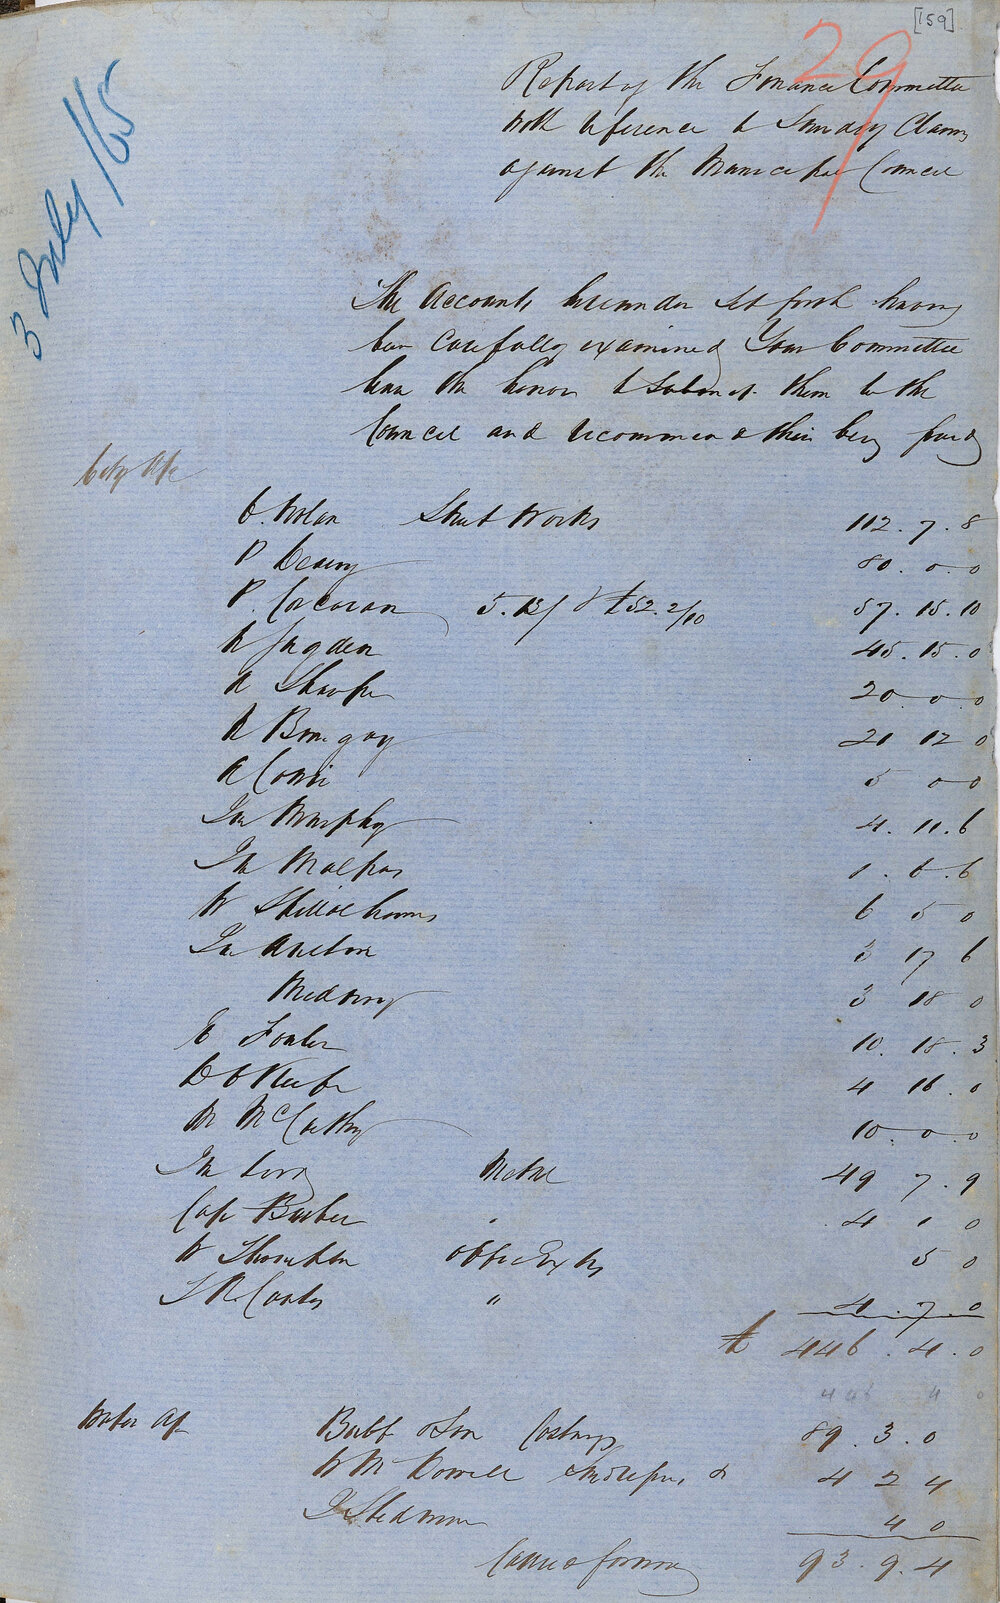 [159]
29
3 July /65
Report of the Finance Committee
with reference to Sundry Claims
against the Municipal Council
The Accounts hereunder set forth having
been Carefully examined Your Committee
have the honor to Submit them to the
Council and recommend their being paid
City A/c
C. Nolan Street Works 112. 7. 8
P 80. 0. 0
P. Corcoran 5. 13/ & £52. 2/10 57. 15. 10
45. 15. 0
Sharpe 20. 0. 0
21 12 0
5 0 0
Jn Murphy 4. 11. 6
Jn Malpas 1. 6. 6
W Skillicorn 6 5 0
Jn 3 17 6
3 18 0
E Fowler 10. 18. 3
D O Keefe 4 16 0
M McCarthy 10. 0. 0
Jn Metal 49 7. 9
Capt Barber " 4 1 0
W Thornton Office Exps 5 0
" 4. 7. 0
£ 446. 4. 0
446 4 0
Water A/c
Bubb & Son Castings 89. 3. 0
W McDowell &c 4 2 4
J Stedman 4 0
Carried forward 93. 9. 4